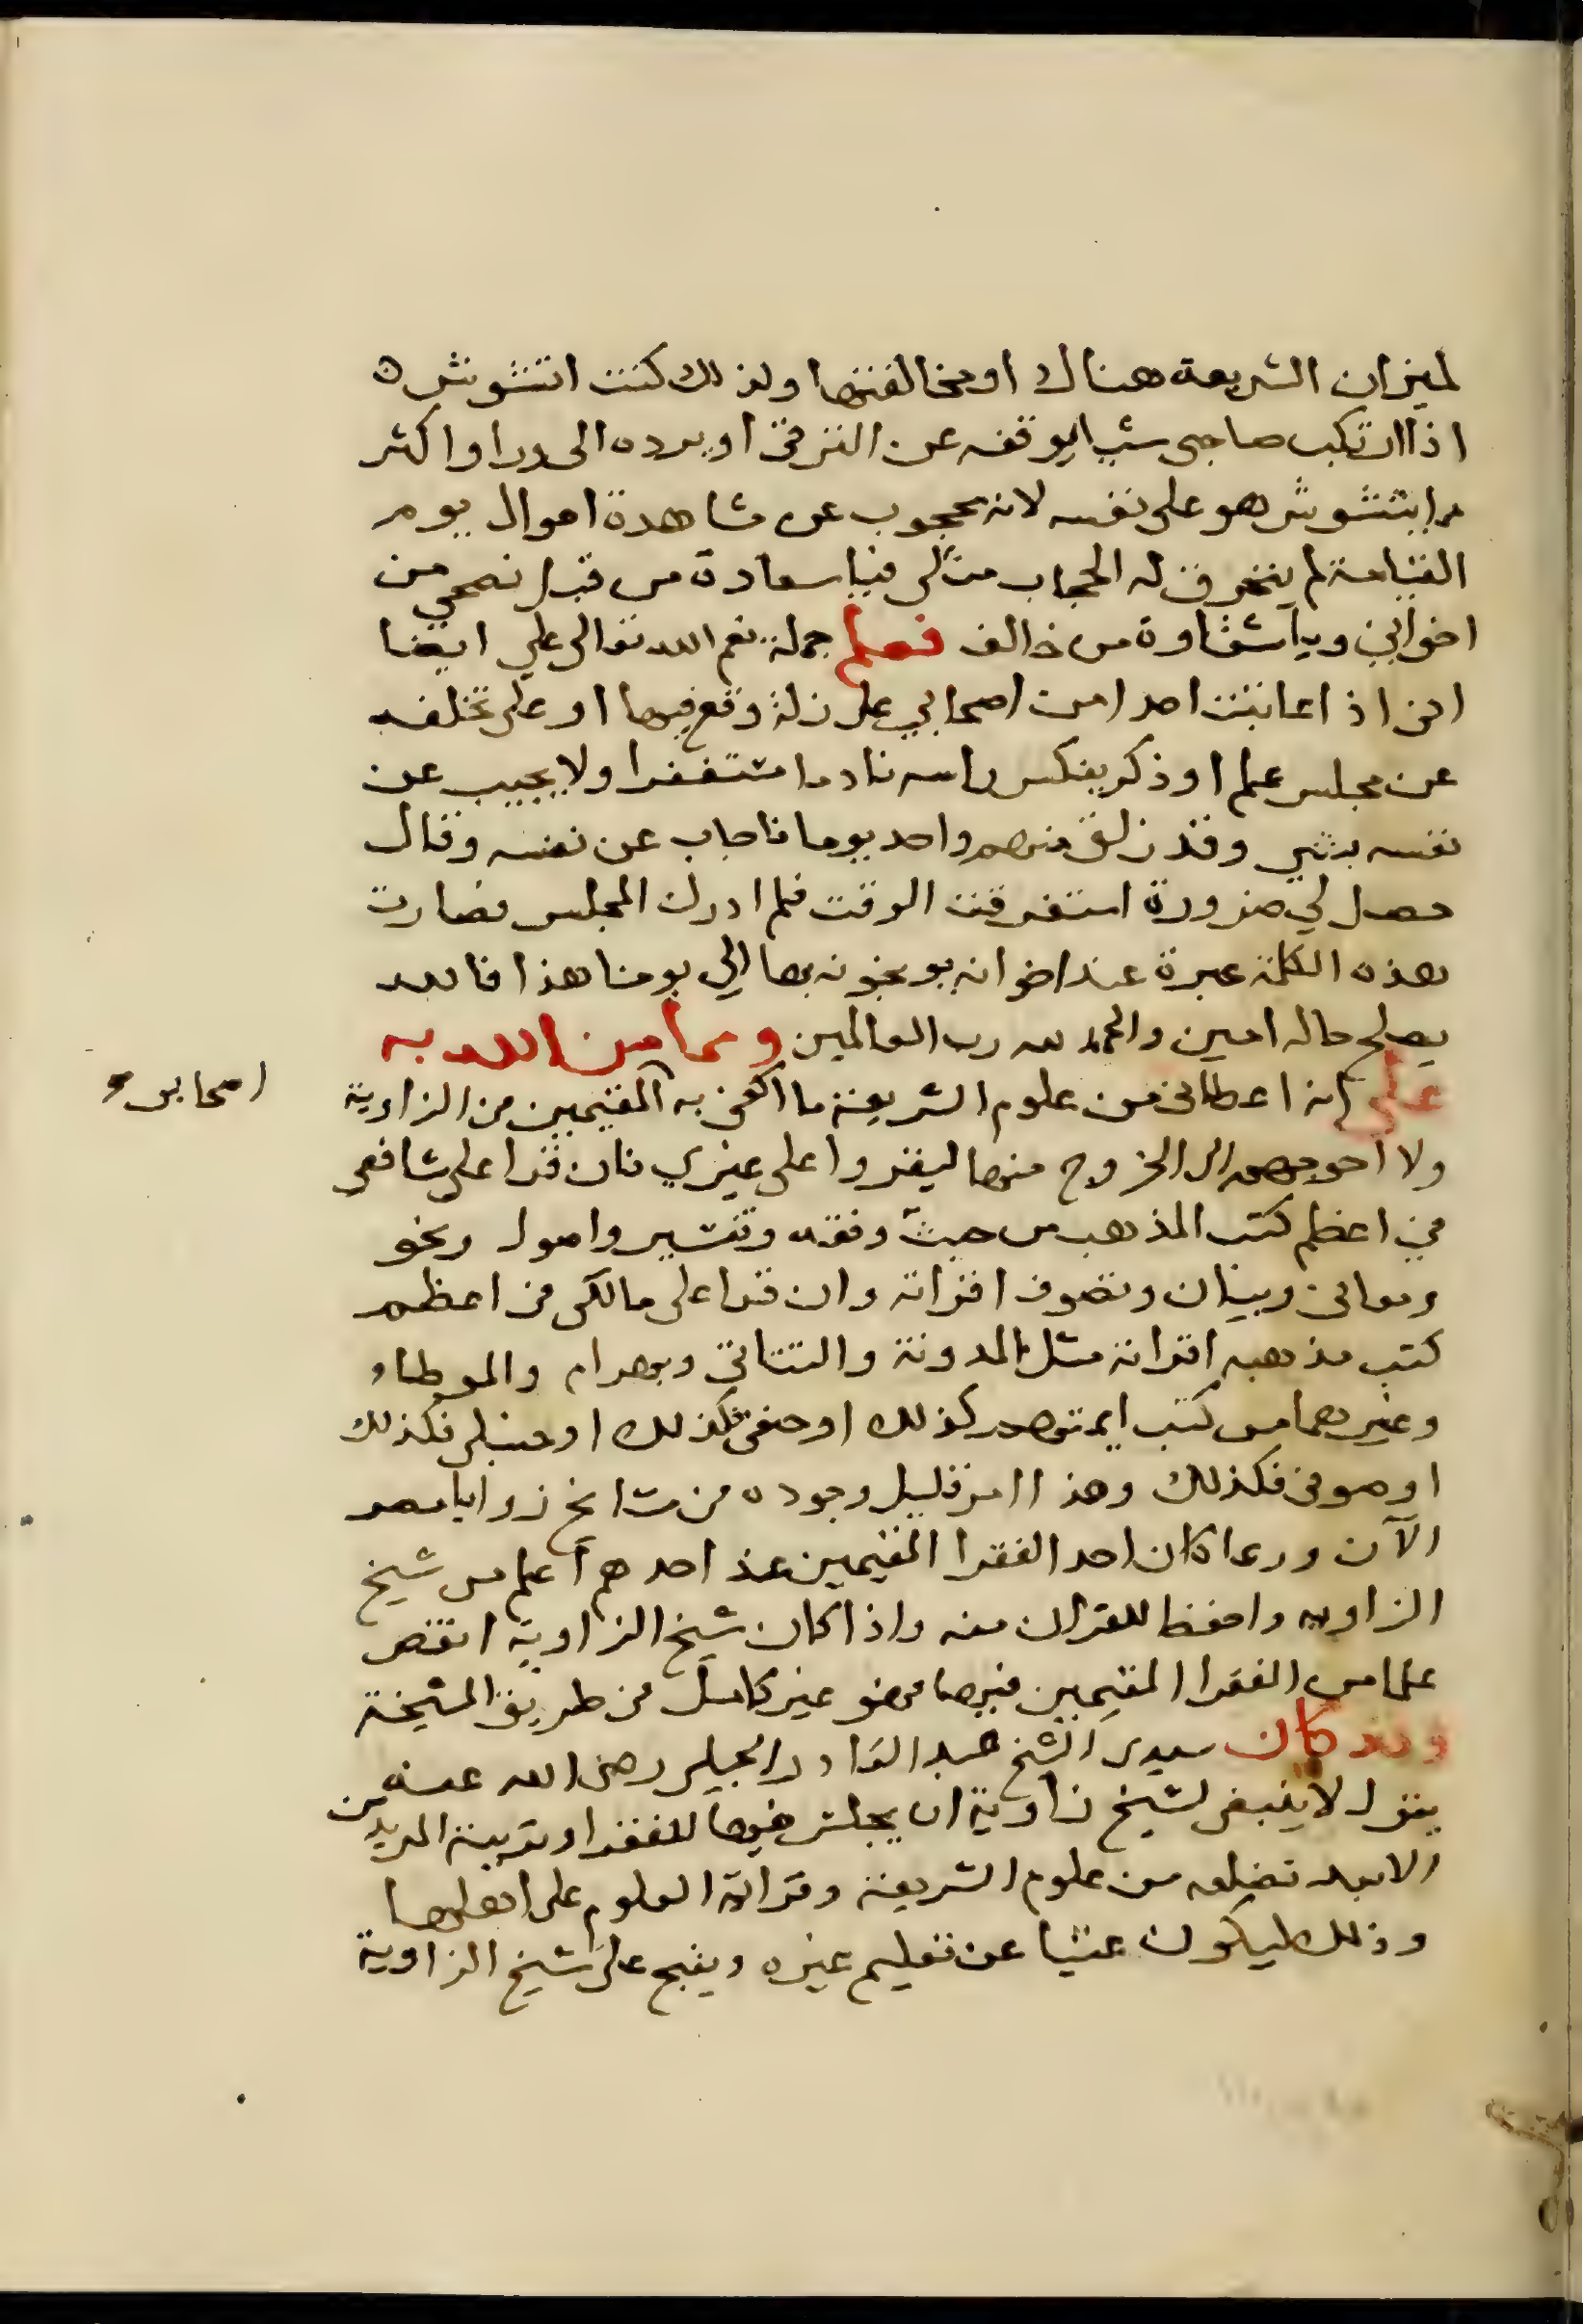 لميزان الشريعة هناك او مخالفتها ولذلك كنت اتشوش
اذا ارتكب صاحبي شيا يوقفه عن الترقي او يرده الى ورا واكثر
ما يتشوش هو على نفسه لانه محجوب عن مشاهدة اهوال يوم
القيامة لم ينخرق له الحجاب مثلى فيا سعادة من قبل نصحي من
اخواني وياشقاوة من خالف فعلم جملة نعم الله تعالى علي ايضا
انى اذا عاتبت احدا من اصحابي على زلة وقع فيها او على تخلفه
عن مجلس علم او ذكر ينكس راسه نادما مستغفرا ولا يجيب عن
نفسه بشي وقد زلق منهم واحد يوما فاجاب عن نفسه وقال
حصل لي ضرورة استغرقت الوقت فلم ادرك المجلس فصارت
هذه الكلمة عبرة عند اخوانه يوبخونه بها الي يومنا هذا فالله
يصلح حاله امين والحمد لله رب العالمين ومما من الله به
على انه اعطانى من علوم الشريعة ما اكفى به المقيمين فى الزاوية
اصحابى
ولا احوجهم الى الخروج منها ليقروا على غيري فان قرا على شافعى
في اعظم كتب المذهب من حديث وفقه وتفسير واصول ونحو
ومعانى وبيان وتصوف اقراته وان قرا على مالكى فى اعظم
كتب مذهبه اقراته مثل المدونة والتتائي وبهرام والموطاء
وغيرهما من كتب ايمتهم كذلك او حنفى فكذلك او حنبلى فكذلك
او صوفى فكذلك وهذا امر قليل وجوده فى مشايخ زوايا مصر
الآن وربما كان احد الفقرا المقيمين عند احدهم اعلم من شيخ
الزاويه واحفظ للقران منه واذا كان شيخ الزاوية انقص
علما من الفقرا المقيمين فيها فهو غير كامل فى طريق المشيخة
وقد كان سيدى الشيخ عبد القادر الجيلى رضى الله عنه
يقول لا ينبغى لشيخ زاوية ان يجلس فيها للفقرا وتربية المريدين
الا بعد تضلعه من علوم الشريعة وقراة العلوم على اهلها
وذلك ليكون غنيا عن تعليم غيره ويقبح على شيخ الزاوية